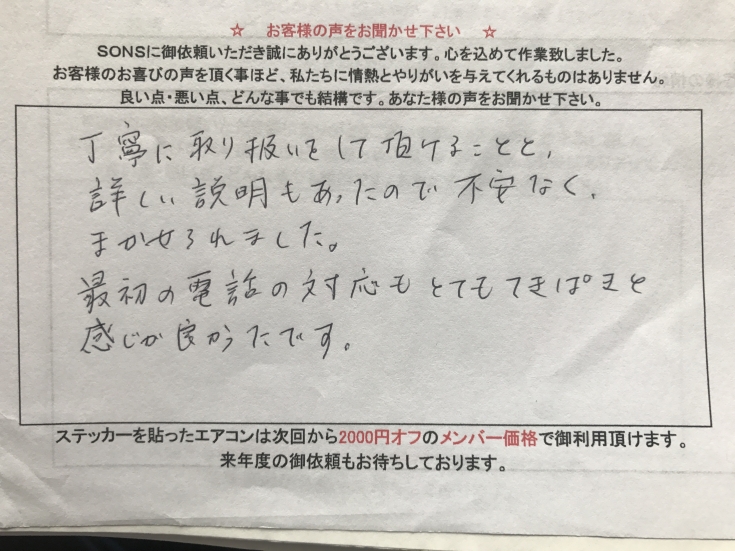 ☆ お客様の声をお聞かせ下さい ☆
SONSに御依頼いただき誠にありがとうございます。心を込めて作業致しました。
お客様のお喜びの声を頂く事ほど、私たちに情熱とやりがいを与えてくれるものはありません。
良い点・悪い点、どんな事でも結構です。あなた様の声をお聞かせ下さい。
丁寧に取り扱いをして頂けることと、
詳しい説明もあったので不安なく、
まかせられました。
最初の電話の対応もとてもてきぱきと
感じが良かったです。
ステッカーを貼ったエアコンは次回から2000円オフのメンバー価格で御利用頂けます。
来年度の御依頼もお待ちしております。